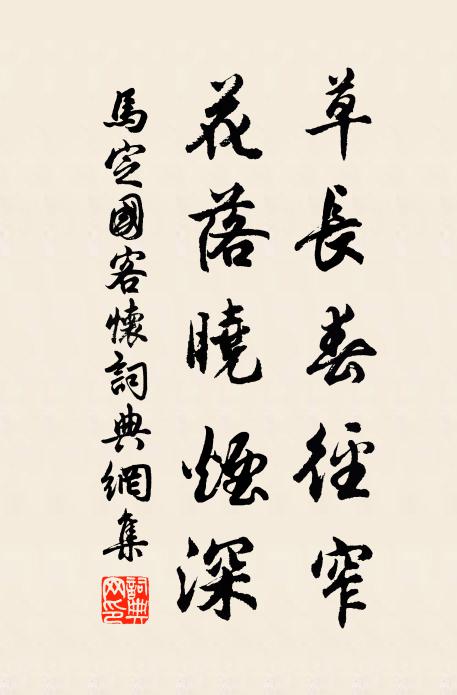 草長春徑窄
花落曉煙深
馬定國客懷詞典網集
詞典网印